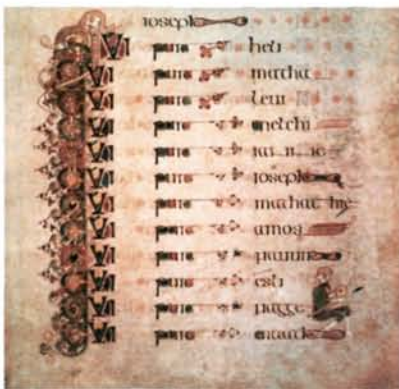 ioseph
qui fuit heli
qui fuit matha
qui fuit leui
qui fuit melchi
qui fuit
qui fuit ioseph
qui fuit
qui fuit amos
qui fuit
qui fuit esli
qui fuit nagge
qui fuit